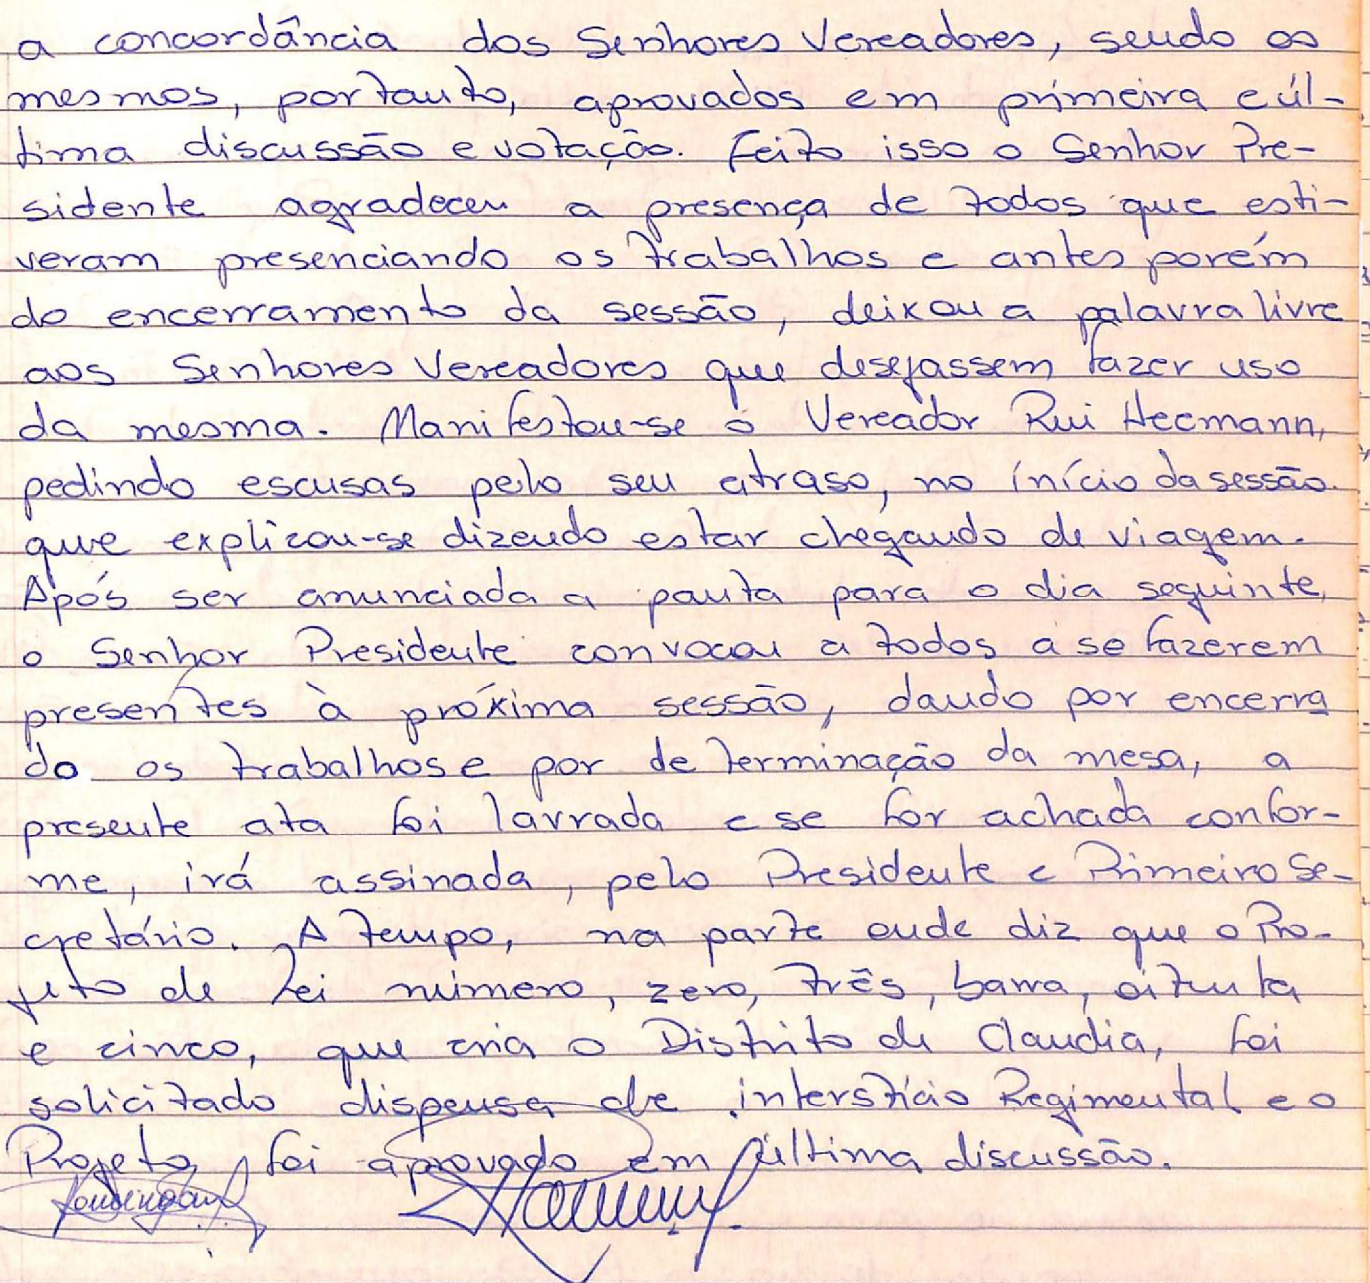 a concordância dos Senhores Vereadores, sendo os
mesmos, portanto, aprovados em primeira e úl-
tima discussão e votação. Feito isso o Senhor Pre-
sidente agradeceu a presença de todos que esti-
veram presenciando os trabalhos e antes porém
do encerramento da sessão, deixou a palavra livre
aos Senhores Vereadores que desejassem fazer uso
da mesma. Manifestou-se o Vereador Rui Heemann,
pedindo escusas pelo seu atraso, no início da sessão.
que explicou-se dizendo estar chegando de viagem.
Após ser anunciada a pauta para o dia seguinte,
o Senhor Presidente convocou a todos a se fazerem
presentes à próxima sessão, dando por encerra
do os trabalhos e por determinação da mesa, a
presente ata foi lavrada e se for achada confor-
me, irá assinada, pelo Presidente e Primeiro Se-
cretário. A tempo, na parte onde diz que o Pro-
jeto de Lei número, zero, três, barra, oitenta
e cinco, que cria o Distrito de Claudia, foi
solicitado dispensa de interstício Regimental e o
Projeto foi aprovado em última discussão.